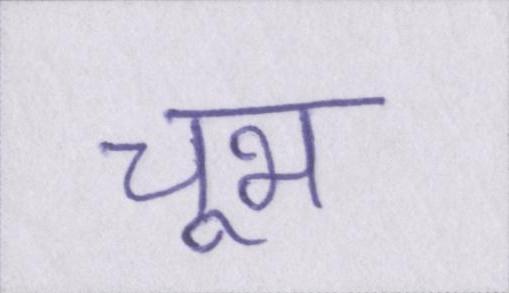 चूभ